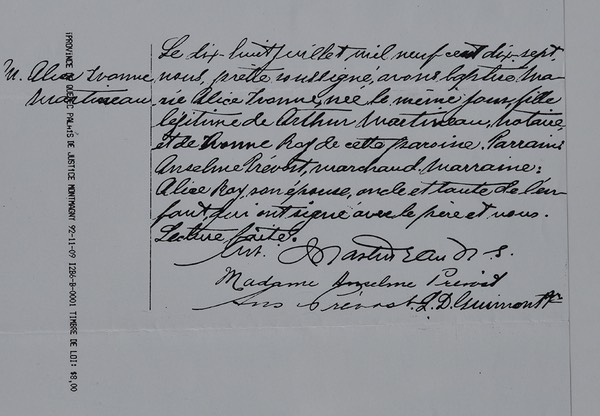 (PROVINCE DE QUEBEC) PALAIS DE JUSTICE MONTMAGNY 92-11-09 1286-8-0001 TIMBRE DE LOI: $8,00
M. Alice Ivonne
Martineau
Le dix-huit juillet mil neuf cent dix-sept,
nous, prêtre soussigné, avons baptisé Ma-
rie Alice Ivonne, née le même jour, fille
légitime de Arthur Martineau, notaire
et de Ivonne Roy de cette paroisse. Parrain:
Anselme Prévost, marchand. Marraine:
Alice Roy, son épouse, oncle et tante de l'en-
fant, qui ont signé avec le père et nous.
Lecture faite.
Art. Martineau N.P.
Madame Anselme Prévost
Ans Prévost. J. D. Guimont Ptr